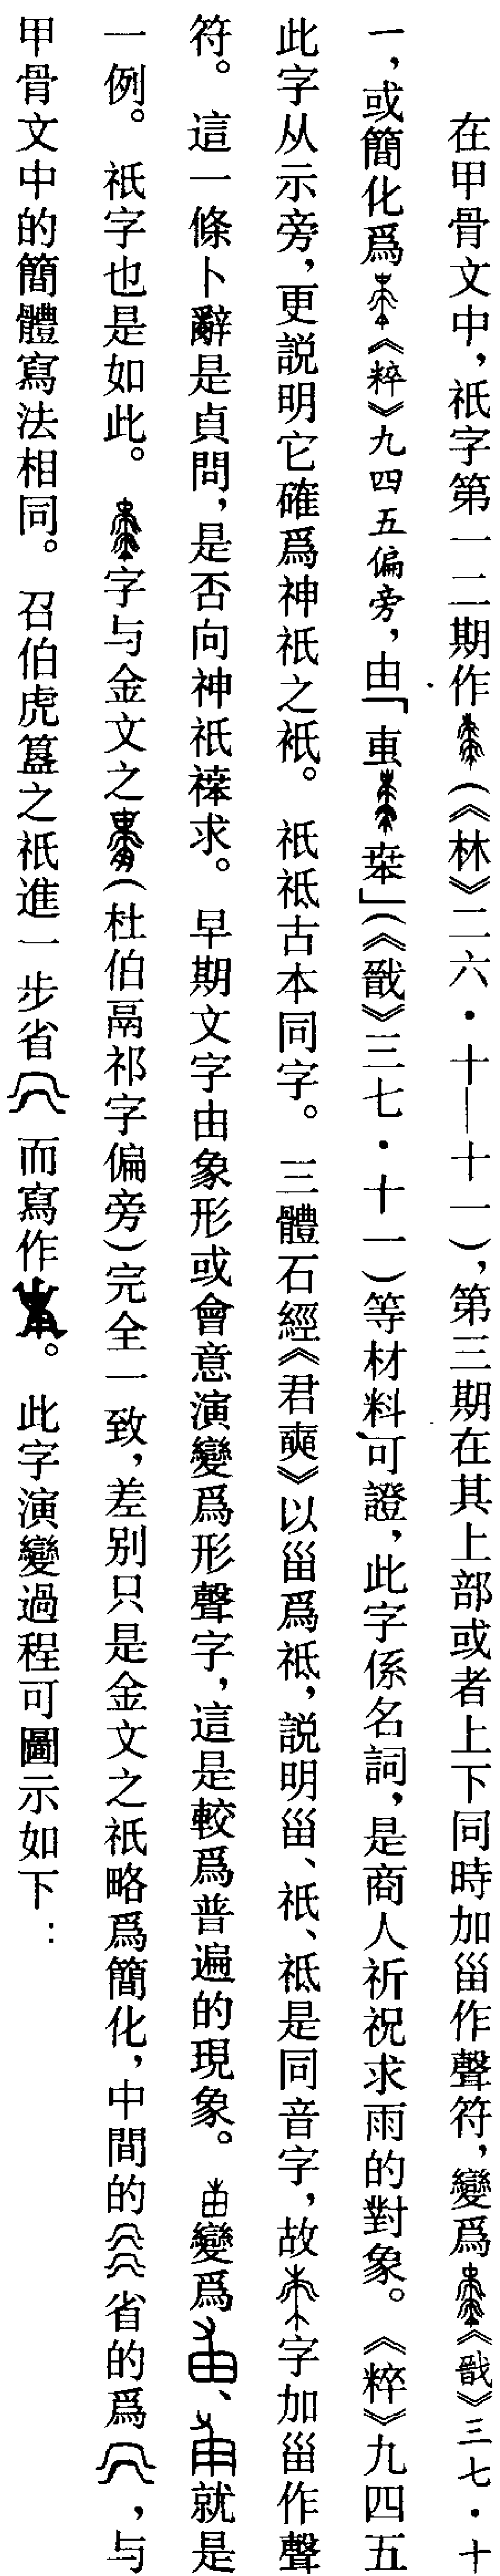 在甲骨文中，祇字第一二期作（《林》二六·十—十一），第三期在其上部或者上下同時加甾作聲符，變爲《戩》三七·十
一，或簡化爲《粹》九四五偏旁，由「叀𠦪」（《戩》三七·十一）等材料可證，此字係名詞，是商人祈祝求雨的對象。《粹》九四五
此字从示旁，更説明它確爲神祇之祇。祇祗古本同字。三體石經《君奭》以甾爲祗，説明甾、祇、祗是同音字，故字加甾作聲
符。這一條卜辭是貞問，是否向神祇𥛅求。早期文字由象形或會意演變爲形聲字，這是較爲普遍的現象。變爲、就是
一例。祇字也是如此。字与金文之（杜伯鬲祁字偏旁）完全一致，差别只是金文之祇略爲簡化，中間的省的爲，与
甲骨文中的簡體寫法相同。召伯虎簋之祇進一步省而寫作。此字演變過程可圖示如下：